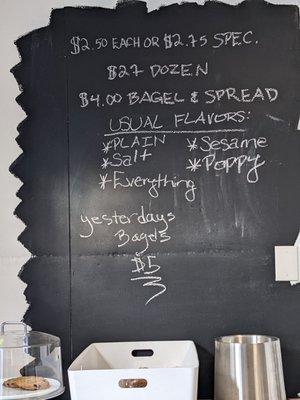 $2.50 EACH OR $2.75 SPEC.
$27 DOZEN
$4.00 BAGEL & SPREAD
USUAL FLAVORS:
*PLAIN *Sesame
*Salt *Poppy
*Everything
yesterdays
Bagels
$5